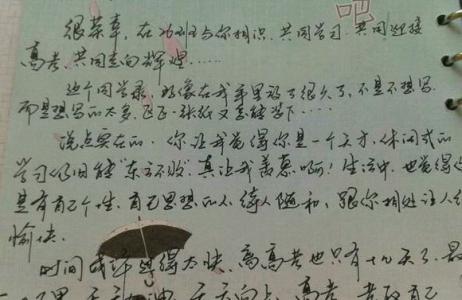 吧
很荣幸，在功班与你相识、共同学习、共同迎接
高考、共同走向辉煌……
这个同学录，好像在我手里放了很久了，不是不想写，
而是想写的太多，区区一张纸又怎能写下……
说点实在的，你让我觉得你是一个天才，休闲式的
学习仍旧能“东方不败”，真让我羡慕啊！生活中，也觉得你
是有自己个性、自己思想的人，待人随和，跟你相处让人很
愉快。
时间或许过得太快，离高考也只有十几天了，最
天天向上，高考，考取自己